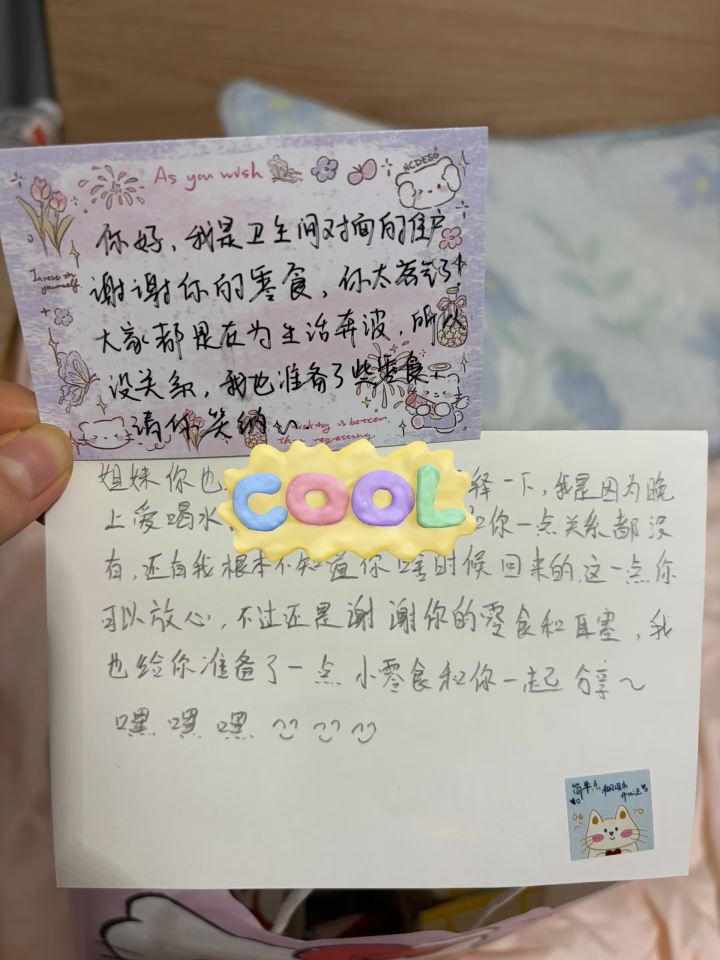 As you wish
NCDESG
你好，我是卫生间对面的住户
谢谢你的零食，你太客气了！
大家都是在为生活奔波，所以
没关系，我也准备了些零食，
请你笑纳～
than regretting
姐妹你也
COOL
释一下，我是因为晚
上爱喝水，
你一点关系都没
有，还有我根本不知道你啥时候回来的，这一点你
可以放心，不过还是谢谢你的零食和耳塞，我
也给你准备了一点小零食和你一起分享～
嘿嘿嘿
简单点